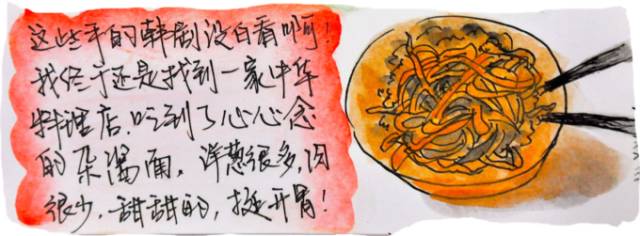 这些年的韩剧没白看啊!
我终于还是找到一家中华
料理店,吃到了心心念
的杂酱面,洋葱很多,肉
很少,甜甜的,挺开胃!